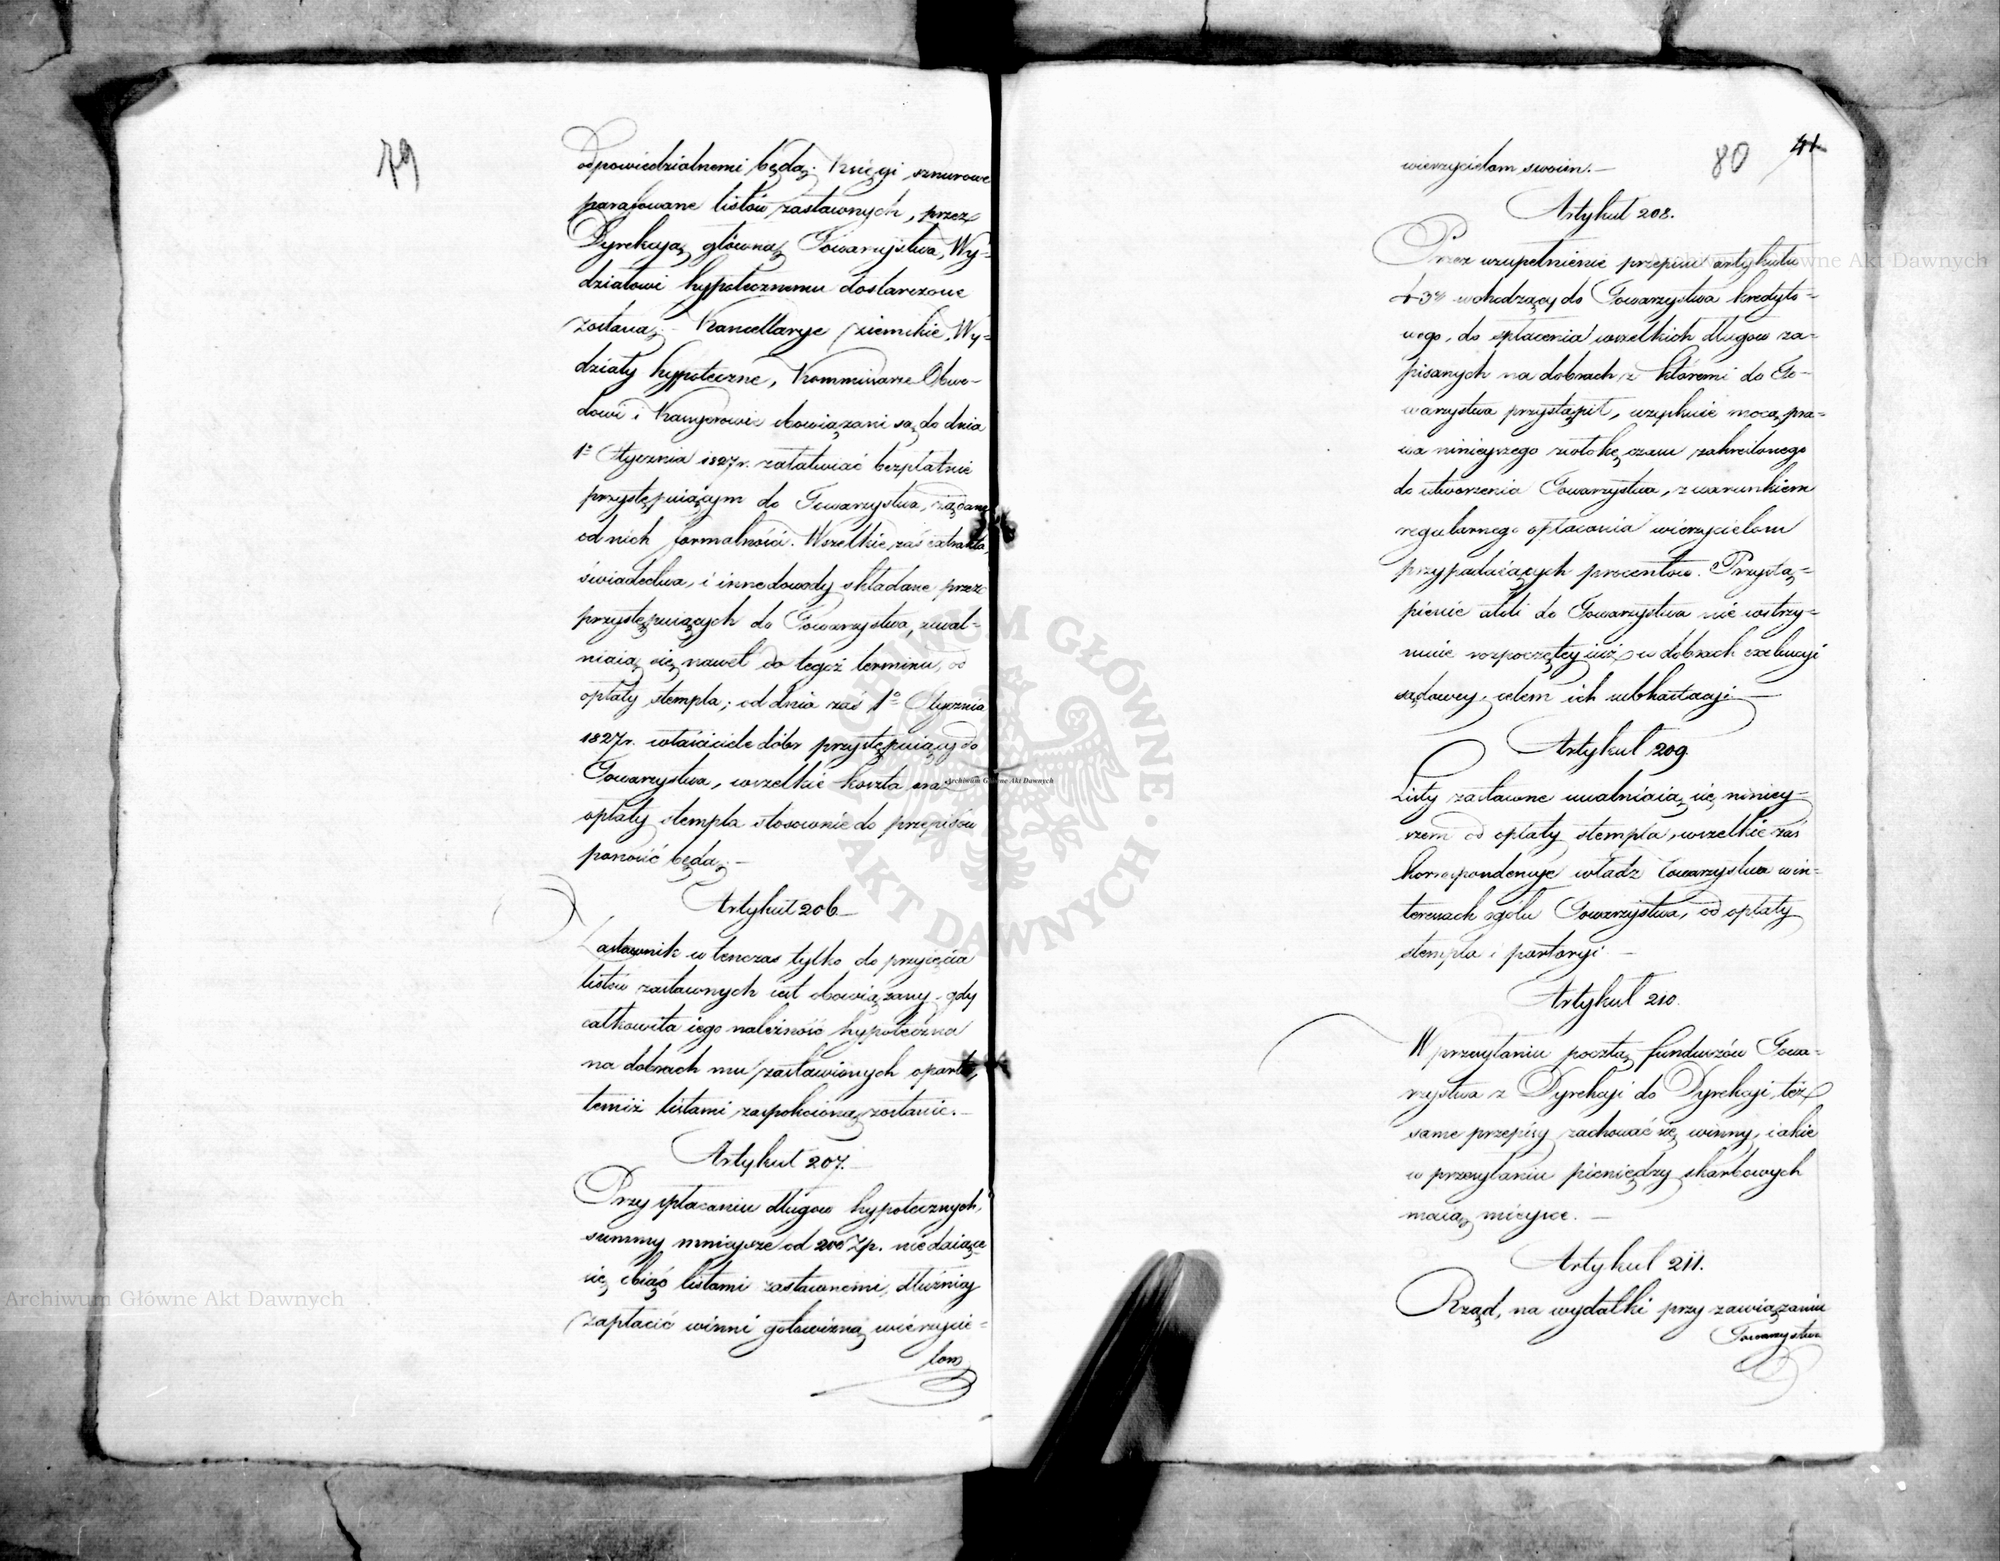 79
odpowiedzialnemi będą. Księgi sznurowe
parafowane listów zastawnych, przez
Dyrekcyą główną Towarzystwa, Wy-
działowi hypotecznemu dostarczone
zostaną. Kancellarye ziemskie, Wy-
działy hypoteczne, Kommissarze Obwo-
dowi i Kassyerowie obowiązani są do dnia
1º Stycznia 1827 r. załatwiać bezpłatnie
przystępuiącym do Towarzystwa, żądane
od nich formalności. Wszelkie zaś extrakta,
świadectwa, i inne dowody składane przez
przystępuiących do Towarzystwa, uwal-
niaią się nawet do tegoż terminu, od
opłaty stempla; od dnia zaś 1º Stycznia
1827 r. właściciele dóbr przystępuiący do
Towarzystwa, wszelkie koszta oraz
opłaty stempla stosownie do przepisów
ponosić będą. —
Artykuł 206 —
Zastawnik w tenczas tylko do przyięcia
listów zastawnych iest obowiązany, gdy
całkowita iego należność hypoteczna
na dobrach mu zastawionych oparta,
temiż listami zaspokoioną zostanie. —
Artykuł 207. —
Przy spłacaniu długow hypotecznych,
summy mnieysze od 200 Zp. nie daiące
się obiąć listami zastawnemi, dłużnicy
zapłacić winni gotowizną wierzycie-
lom
80
41
wierzycielom swoim. —
Artykuł 208.
Przez uzupełnienie przepisu artykułu
43º wchodzący do Towarzystwa kredyto-
wego, do spłacenia wszelkich długow za-
pisanych na dobrach z któremi do To-
warzystwa przystąpił, uzyskuie mocą pra-
wa ninieyszego zwłokę czasu zakreślonego
do utworzenia Towarzystwa, z warunkiem
regularnego opłacania wierzycielom
przypadaiących procentów. Przystą-
pienie atoli do Towarzystwa nie wstrzy-
muie rozpoczętey iuż w dobrach exekucyi
sądowey, celem ich subhastacyi —
Artykuł 209.
Listy zastawne uwalniaią się niniey-
szem od opłaty stempla, wszelkie zaś
korrespondencye władz Towarzystwa w in-
teressach ogółu Towarzystwa, od opłaty
stempla i portoryi. —
Artykuł 210.
W przesyłaniu pocztą funduszów Towa-
rzystwa z Dyrekcyi do Dyrekcyi, też
same przepisy zachować się winny, iakie
w przesyłaniu pieniędzy skarbowych
maią mieysce. —
Artykuł 211.
Rząd, na wydatki przy zawiązaniu
Towarzystwa
Archiwum Główne Akt Dawnych
Archiwum Główne Akt Dawnych
Archiwum Główne Akt Dawnych
ARCHIWUM GŁÓWNE · AKT DAWNYCH ·